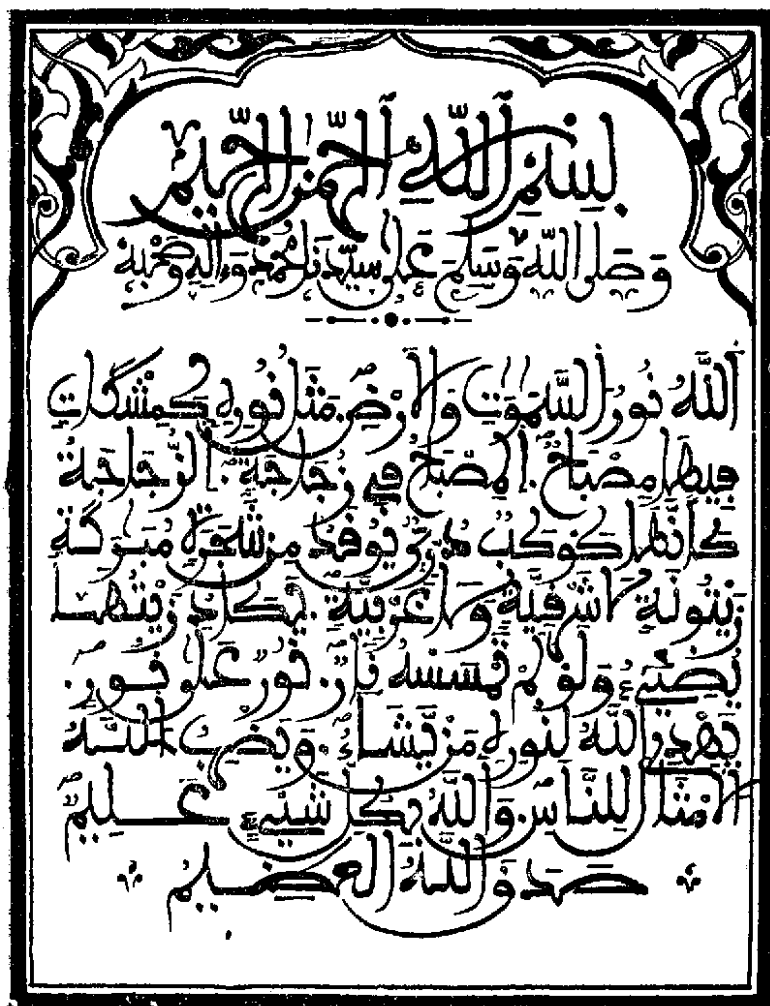 بسم الله الرحمن الرحيم
وصلى الله وسلم على سيدنا محمد وءاله وصحبه
الله نور السموت والارض مثل نوره كمشكات
فيها مصباح المصباح في زجاجة الزجاجة
كأنها كوكب دري يوقد من شجرة مبركة
زيتونة لا شرقية ولا غربية يكاد زيتها
يضيء ولو لم تمسسه نار نور على نور
يهدي الله لنوره من يشاء ويضرب الله
الامثل للناس والله بكل شيء عليم
صدق الله العظيم